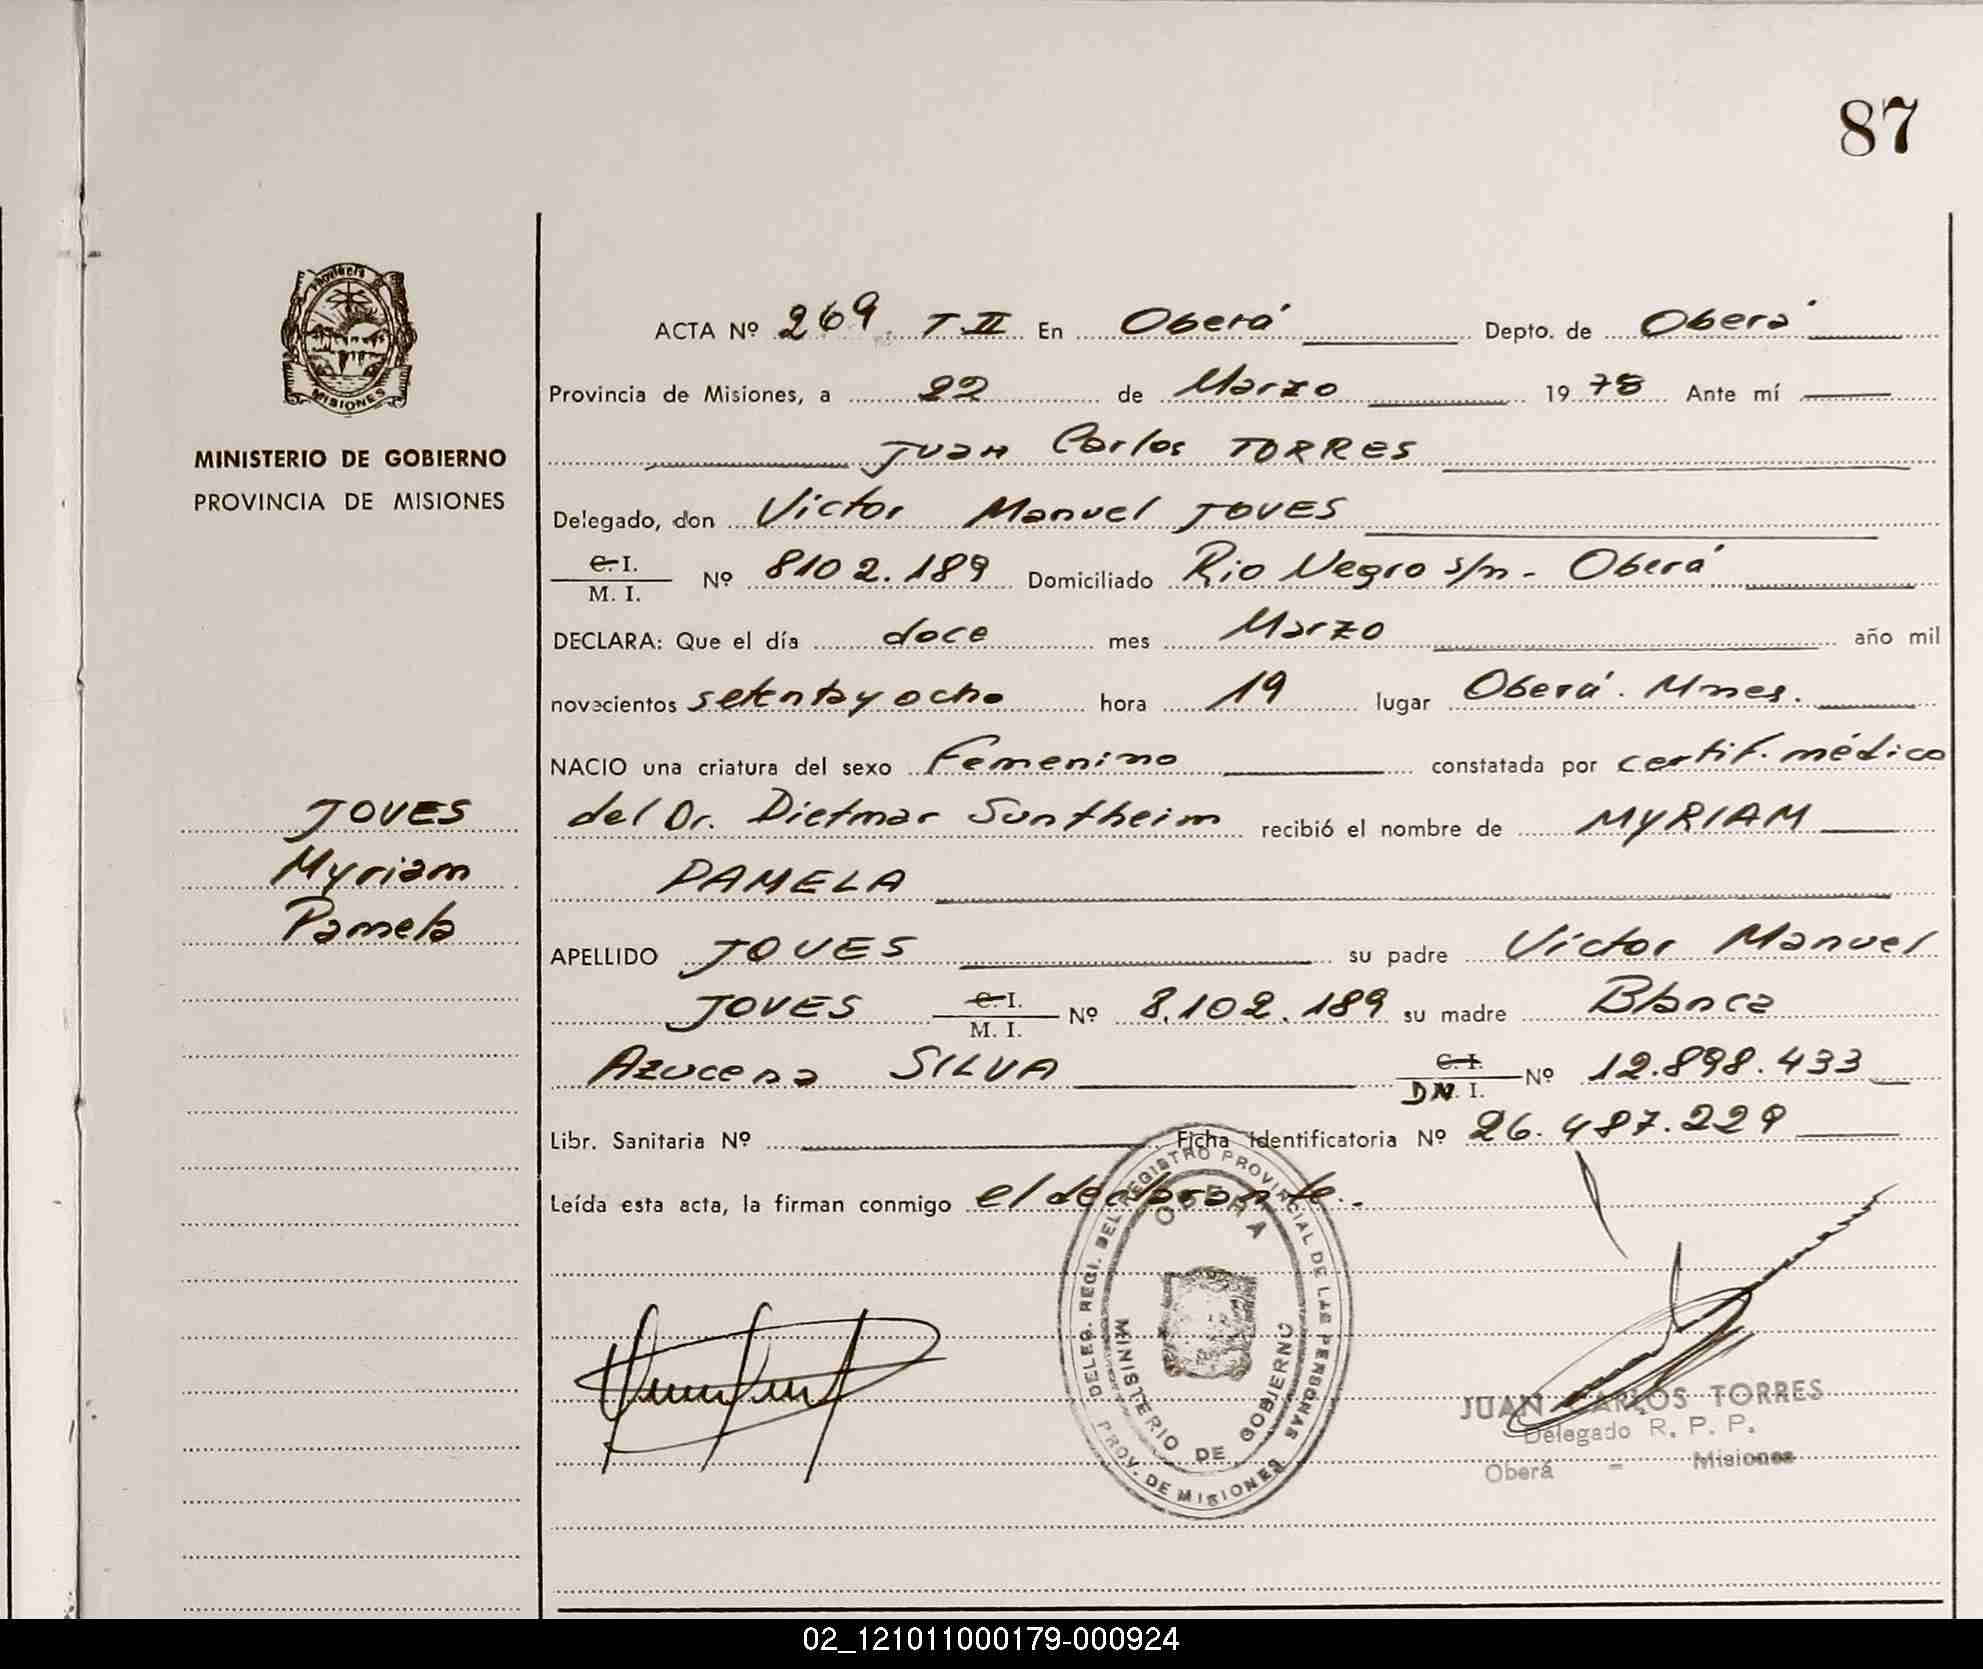 87
PROVINCIA
MISIONES
MINISTERIO DE GOBIERNO
PROVINCIA DE MISIONES
JOVES
Myriam
Pamela
ACTA Nº 269 T.II En Oberá Depto. de Oberá
Provincia de Misiones, a 22 de Marzo 1978 Ante mí
Juan Carlos TORRES
Delegado, don Víctor Manuel JOVES
C. I. / M. I. Nº 8102.189 Domiciliado Rio Negro s/n - Oberá
DECLARA: Que el día doce mes Marzo año mil
novecientos setenta y ocho hora 19 lugar Oberá. Mnes.
NACIO una criatura del sexo Femenino constatada por certif. médico
del Dr. Dietmar Suntheim recibió el nombre de MYRIAM
PAMELA
APELLIDO JOVES su padre Víctor Manuel
JOVES C. I. / M. I. Nº 8.102.189 su madre Blanca
Azucena SILVA C. I. / DN. I. Nº 12.898.433
Libr. Sanitaria Nº Ficha Identificatoria Nº 26.487.229
Leída esta acta, la firman conmigo el declarante.-
DELEG. REGI. DEL REGISTRO PROVINCIAL DE LAS PERSONAS
OBERA
MINISTERIO DE GOBIERNO
PROV. DE MISIONES
JUAN CARLOS TORRES
Delegado R. P. P.
Oberá - Misiones
02_121011000179-000924